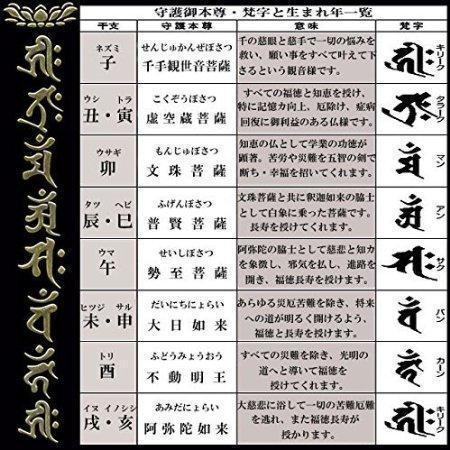 守護御本尊・梵字と生まれ年一覧
干支
守護本尊
意味
梵字
ネズミ
子
せんじゅかんぜぼさつ
千手観世音菩薩
千の慈眼と慈手で一切の悩みを
救い、願い事をすべて叶えて下
さるという観音様です。
キリーク
ウシ トラ
丑・寅
こくぞうぼさつ
虚空蔵菩薩
すべての福徳と知恵を授け、
特に記憶力向上、厄除け、症病
回復に御利益のある仏様です。
タラーク
ウサギ
卯
もんじゅぼさつ
文珠菩薩
知恵の仏として学業の功徳が
顕著。苦労や災難を五智の剣で
断ち・幸福を招いてくれます。
マン
タツ ヘビ
辰・巳
ふげんぼさつ
普賢菩薩
文珠菩薩と共に釈迦如来の脇士
として白象に乗った菩薩です。
長寿を授けてくれます。
アン
ウマ
午
せいしぼさつ
勢至菩薩
阿弥陀の脇士として慈悲と知力
を象徴し、邪気を払し、進路を
開き、福徳長寿を授けます。
サク
ヒツジ サル
未・申
だいにちにょらい
大日如来
あらゆる災厄苦難を除き、将来
への道が明るく開けるよう、
福徳と長寿を授けます。
バン
トリ
酉
ふどうみょうおう
不動明王
すべての災難を除き、光明の
道へと導いて福徳を
授けてくれます。
カーン
イヌ イノシシ
戌・亥
あみだにょらい
阿弥陀如来
大慈悲に浴して一切の苦難厄難
を逃れ、また福徳長寿が
授かります。
キリーク